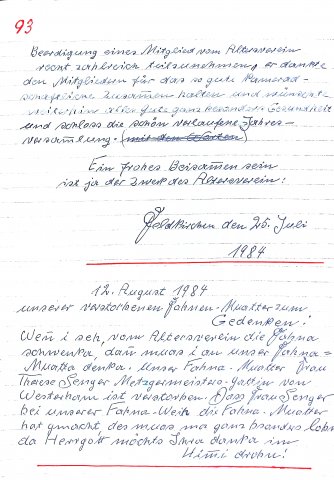 93
Beerdigung eines Mitglied vom Altersverein
recht zahlreich teilzunehmen, er dankte
den Mitgliedern für das so gute Kamerad-
schaftliche Zusammen halten und wünschte
weiterhin alles Gute ganz besonders Gesundheit
und schloss die schön verlaufene Jahres-
versammlung. mit den Worten
Ein frohes Beisamen sein
ist ja der Zweck des Altersverein!
Feldkirchen den 25. Juli
1984
12. August 1984
unserer verstorbenen Fahnen-Muatter zum
Gedenken!
Wen i seh, vom Altersverein die Fahna
schwenka, dan muas i an unser Fahna=
Muatta denka. Unser Fahna-Muatter Frau
Therese Senger Metzgermeisters-Gattin von
Westerham ist verstorben. Dass Frau Senger
bei unserer Fahna-Weih die Fahna-Muatter
hat gmacht des muas ma ganz bsonders lobn
da Herrgott möchts Ihra danka im
Himi drobn!